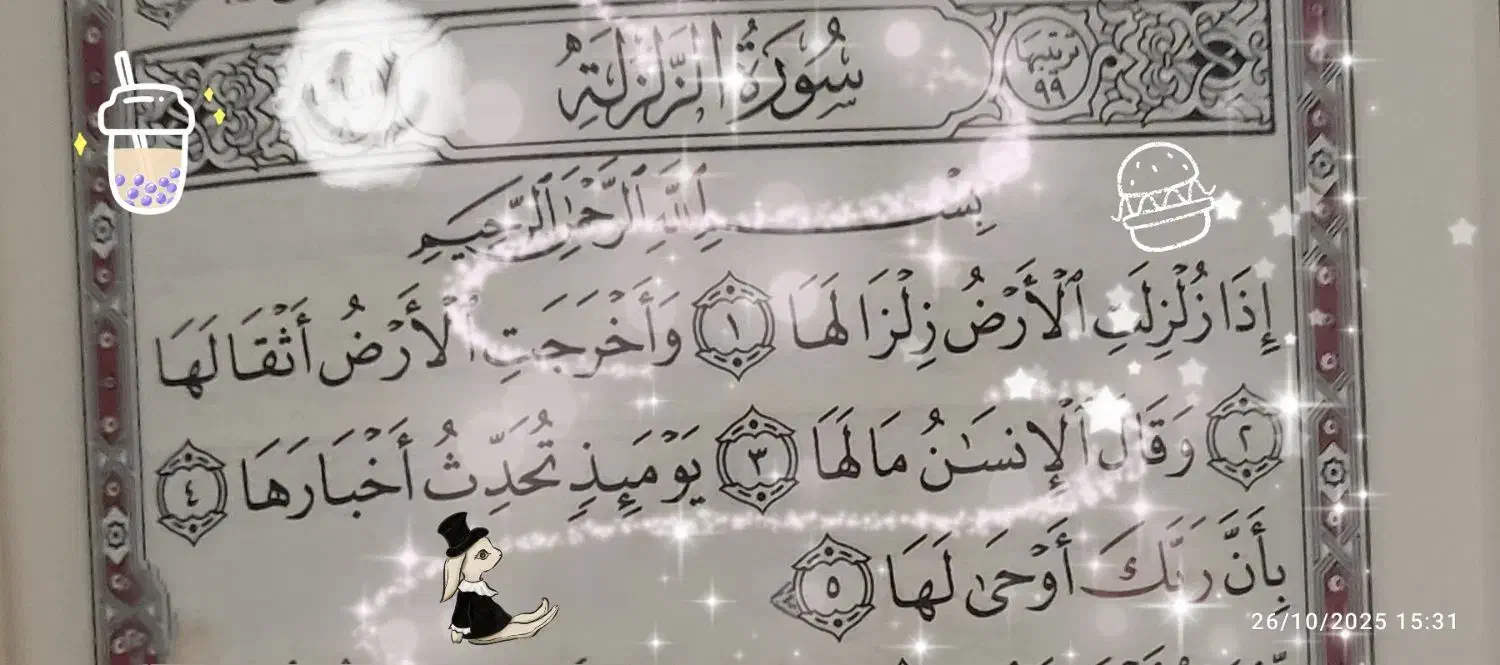 سُورَةُ الزَّلْزَلَةِ
ترتيبها ٩٩
بِسْمِ ٱللَّهِ ٱلرَّحْمَٰنِ ٱلرَّحِيمِ
إِذَا زُلْزِلَتِ ٱلْأَرْضُ زِلْزَالَهَا ١ وَأَخْرَجَتِ ٱلْأَرْضُ أَثْقَالَهَا
٢ وَقَالَ ٱلْإِنسَٰنُ مَا لَهَا ٣ يَوْمَئِذٍ تُحَدِّثُ أَخْبَارَهَا ٤
بِأَنَّ رَبَّكَ أَوْحَىٰ لَهَا ٥
26/10/2025 15:31